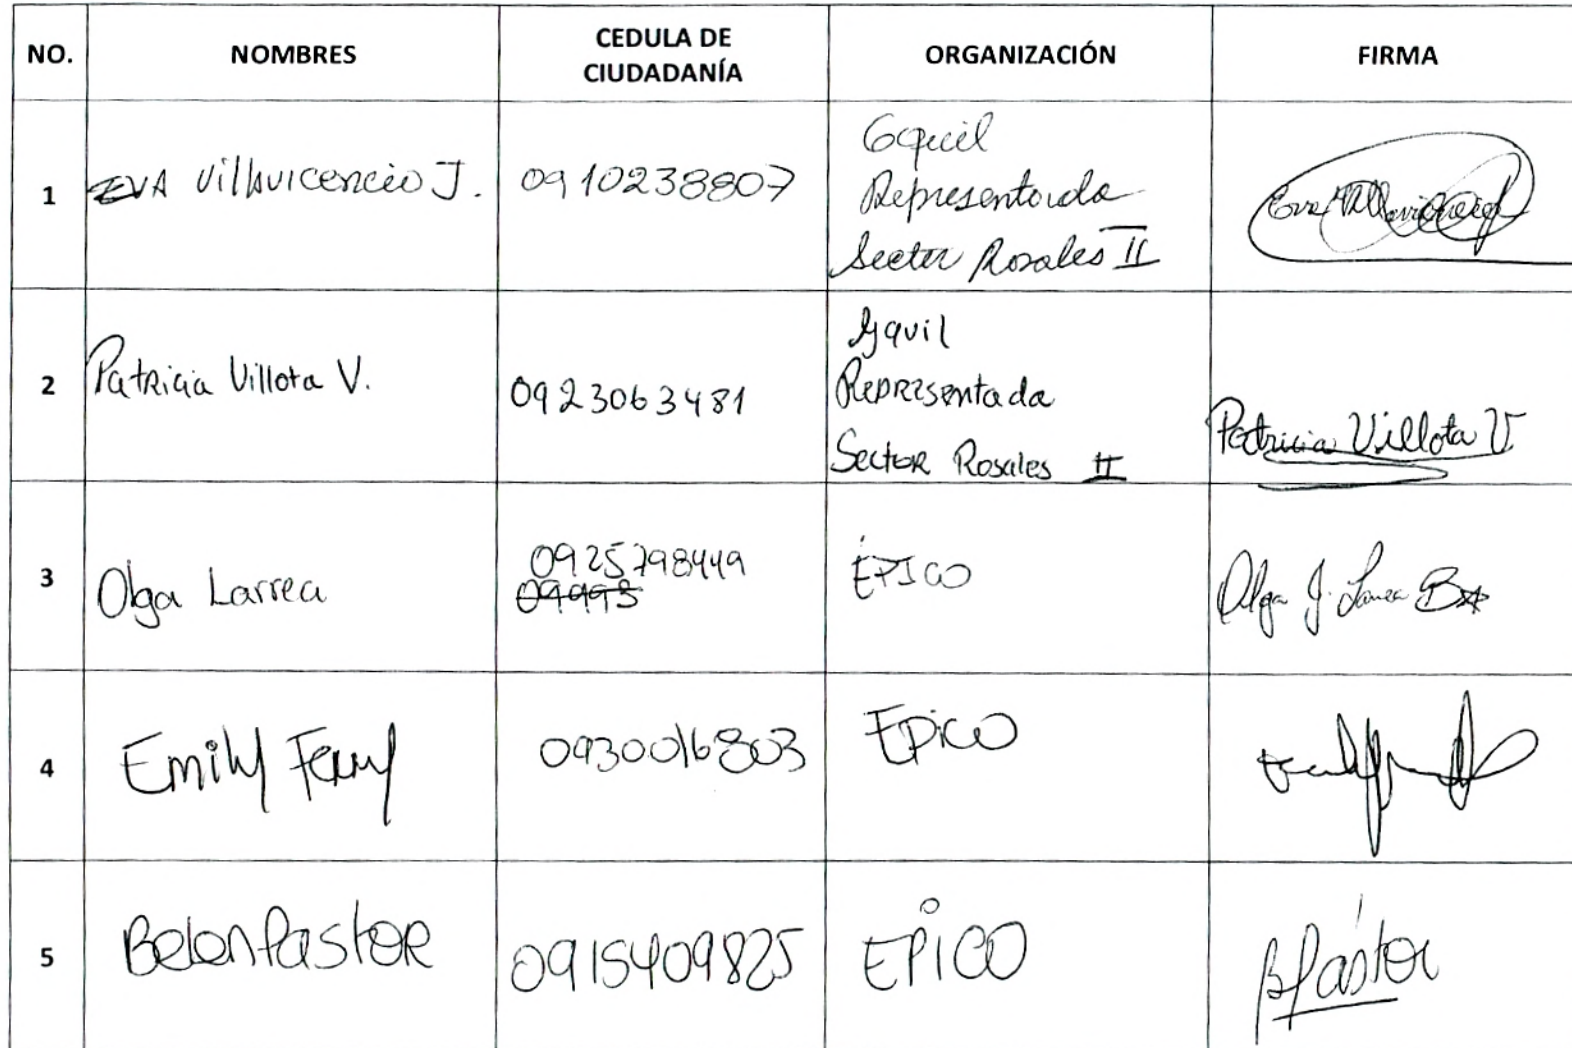 NO. NOMBRES CEDULA DE CIUDADANÍA ORGANIZACIÓN FIRMA
1 EVA Villavicencio J. 0910238807 Gquil
Representada
Sector Rosales II
2 Patricia Villota V. 0923063481 Gquil
Representada
Sector Rosales II Patricia Villota V
3 Olga Larrea 0925798449 ÉPICO Olga J. Larrea B
09995
4 Emily 0930016803 Epico
5 Belen Pastor 0915409825 EPICO BPástor